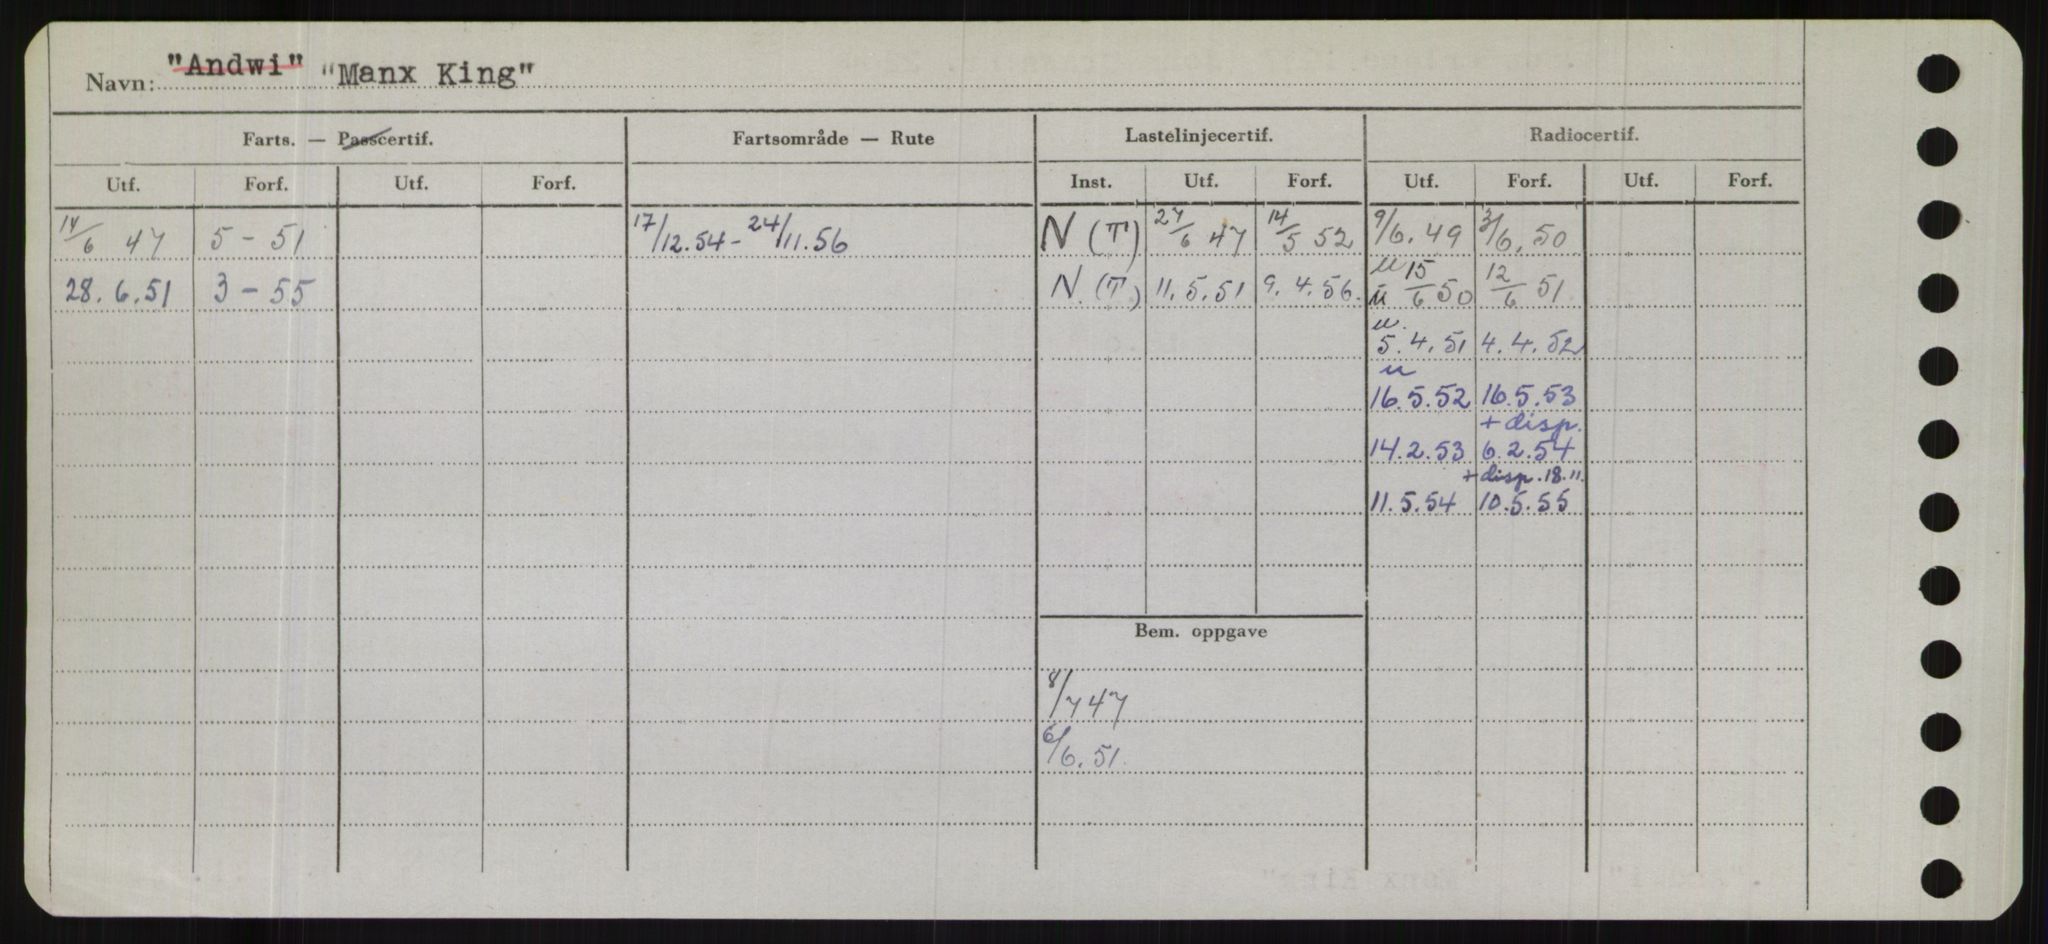 Navn: "Andwi" "Manx King"
Farts. — Passcertif. Fartsområde — Rute Lastelinjecertif. Radiocertif.
Utf. Forf. Utf. Forf. Inst. Utf. Forf. Utf. Forf. Utf. Forf.
14/6 47 5 - 51 17/12.54 - 24/11.56 N (T) 27/6 47 14/5 52 9/6.49 3/6.50
28.6.51 3 - 55 N. (T) 11.5.51 9.4.56. u 15/6 50 12/6 51
u.
5.4.51 4.4.52
u
16.5.52 16.5.53
+ disp.
14.2.53 6.2.54
+ disp. 18.11.
11.5.54 10.5.55
Bem. oppgave
8/7 47
6/6.51.